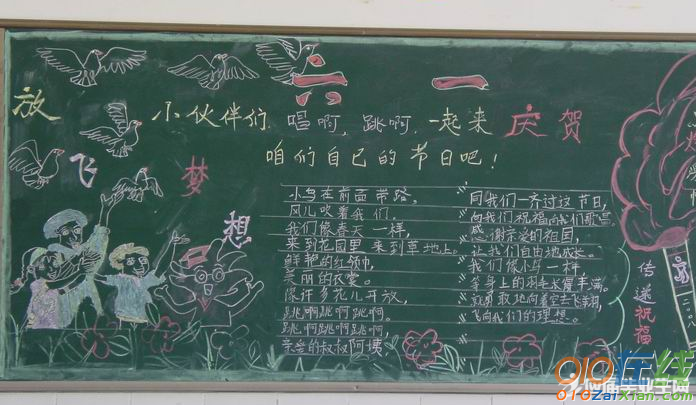 放飞梦想
六一
小伙伴们，唱啊，跳啊，一起来庆贺
咱们自己的节日吧！
小鸟在前面带路，
风儿吹着我们，
我们像春天一样，
来到花园里 来到草地上。
鲜艳的红领巾，
美丽的衣裳。
像许多花儿开放，
跳啊跳啊跳啊，
跳啊跳啊跳啊，
亲爱的叔叔阿姨
同我们一齐讨这节日，
向我们祝福向我们歌唱。
感谢亲爱的祖国，
让我们自由地成长。
我们像小鸟一样，
等身上的羽毛长得丰满。
就勇敢地向着空去飞翔，
飞向我们的理想。
传递祝福
应届毕业生网
010在线
010ZaiXian.com